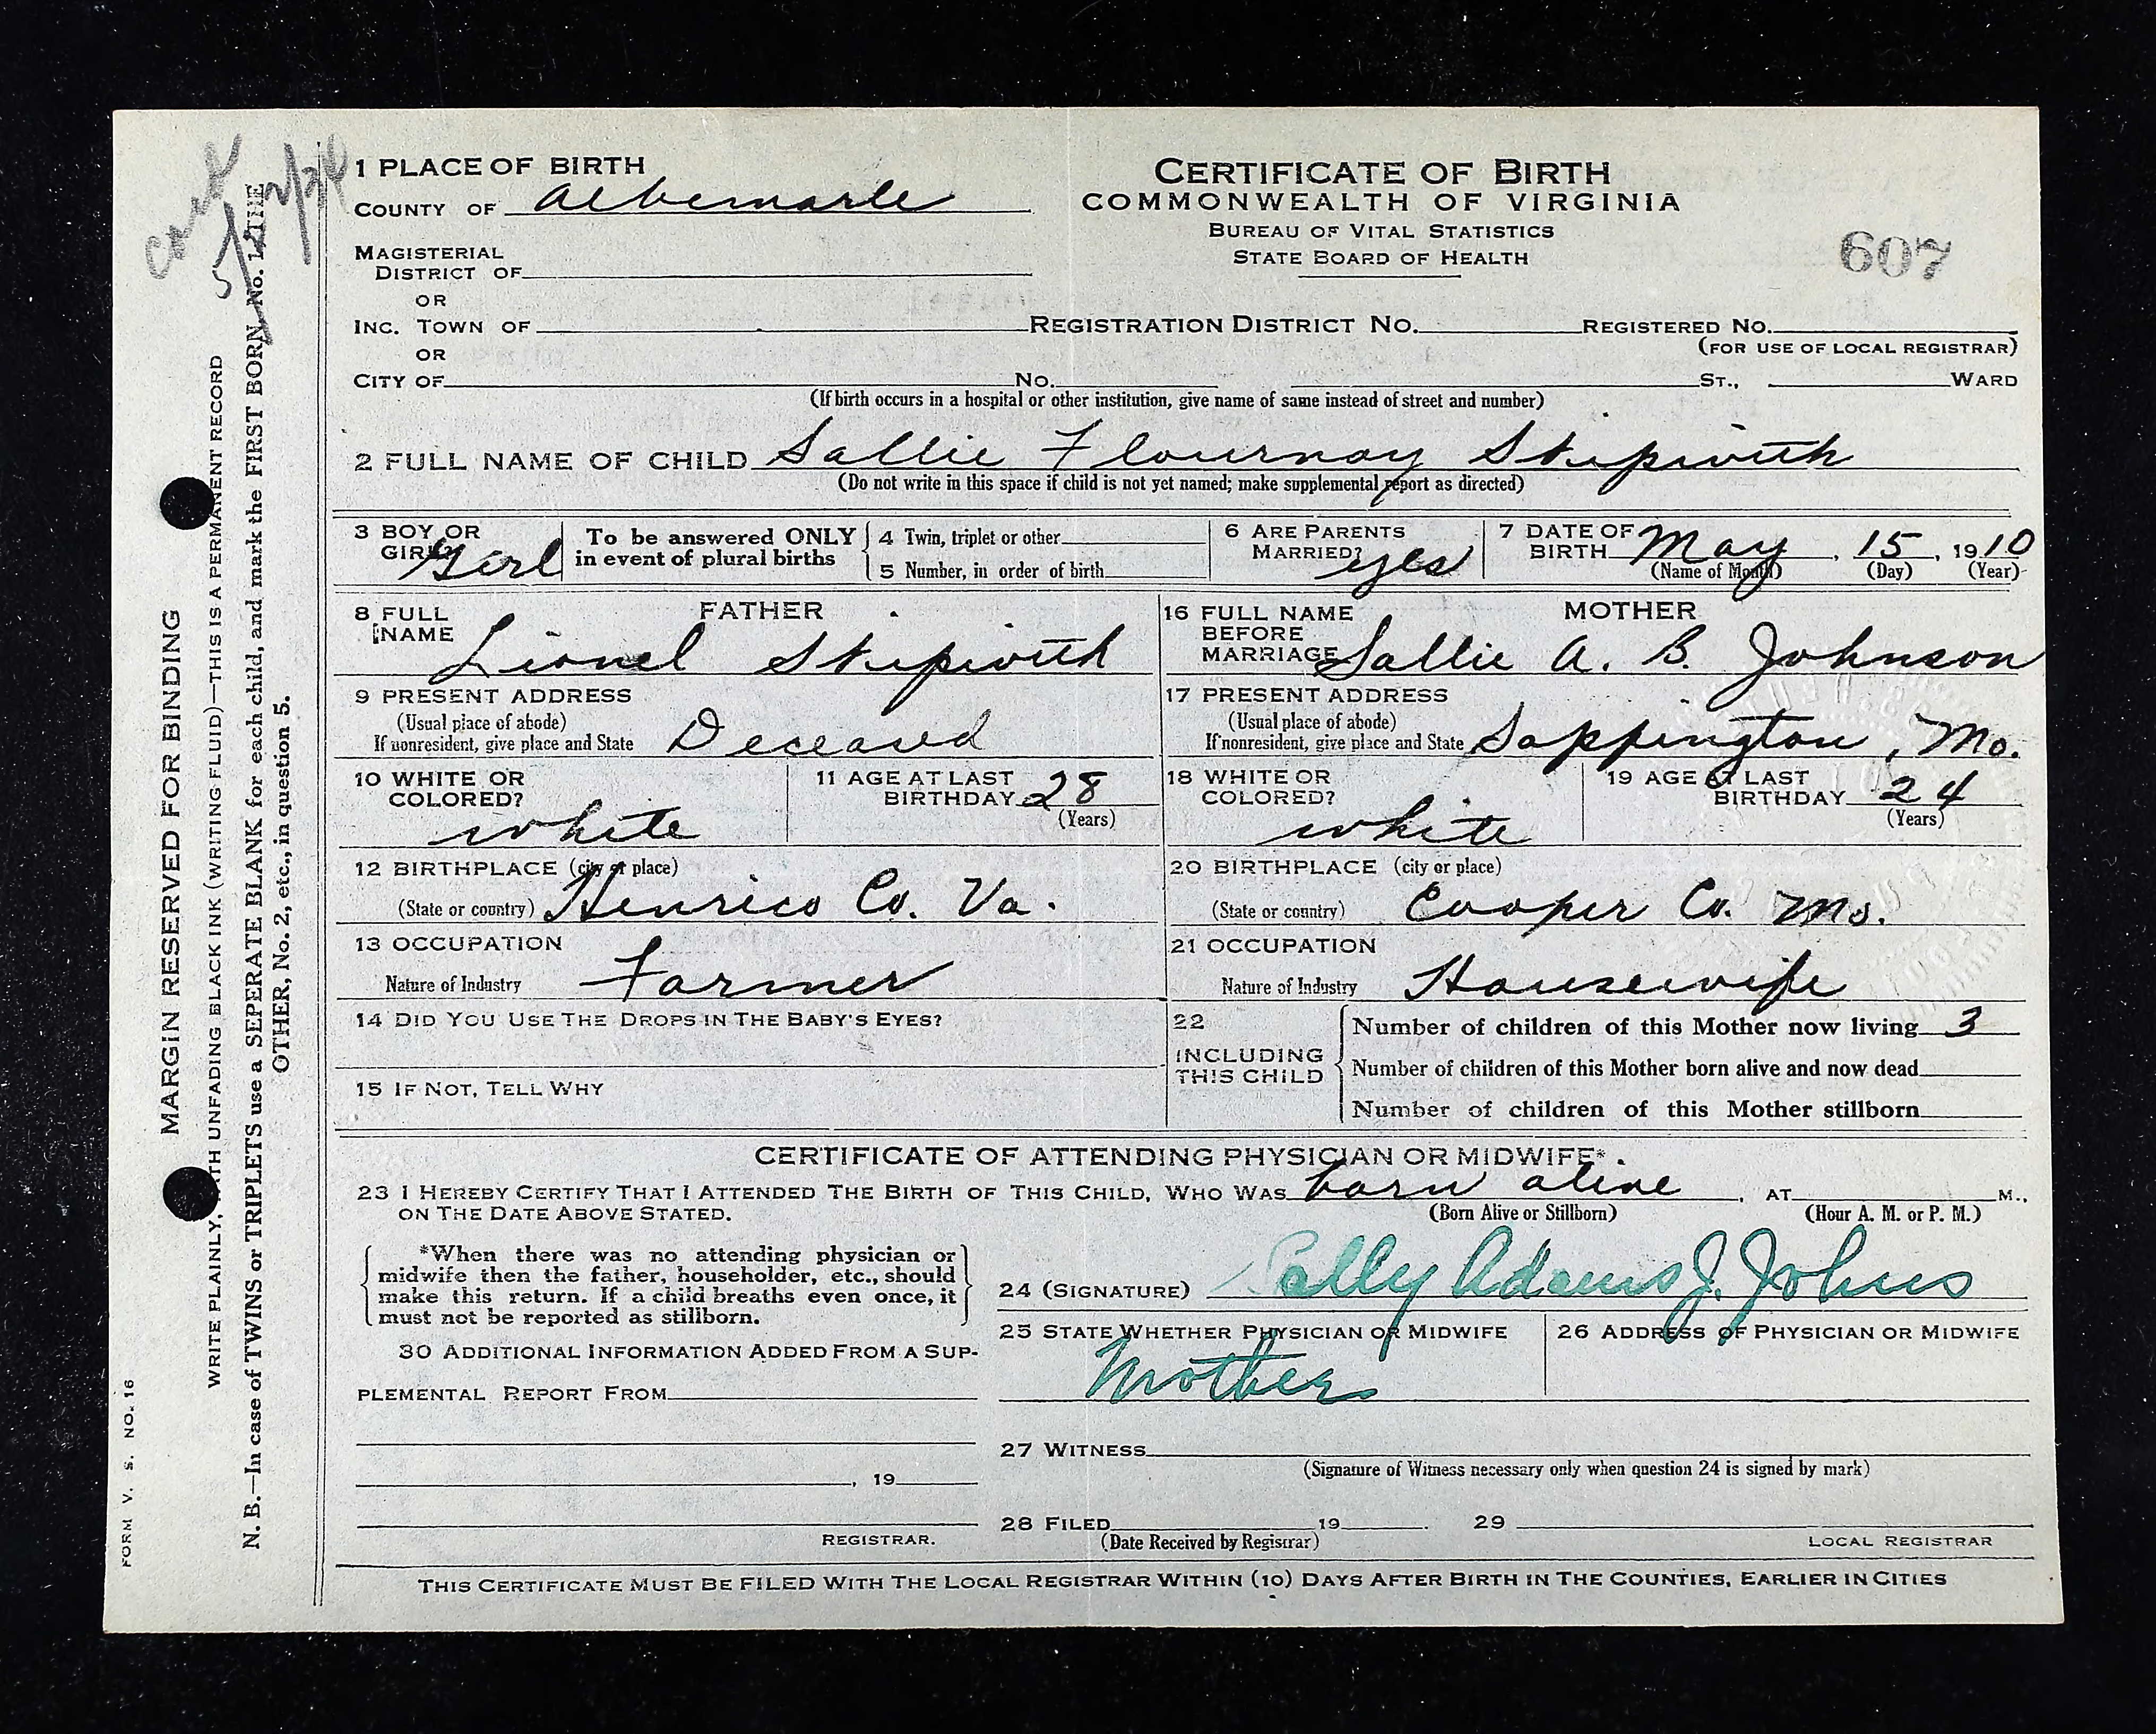 1 PLACE OF BIRTH
COUNTY OF Albemarle
CERTIFICATE OF BIRTH
COMMONWEALTH OF VIRGINIA
BUREAU OF VITAL STATISTICS
STATE BOARD OF HEALTH
607
MAGISTERIAL
DISTRICT OF
OR
INC. TOWN OF REGISTRATION DISTRICT NO. REGISTERED NO.
(FOR USE OF LOCAL REGISTRAR)
OR
CITY OF No. ST., WARD
(If birth occurs in a hospital or other institution, give name of same instead of street and number)
2 FULL NAME OF CHILD Sallie Flournoy Skipwith
(Do not write in this space if child is not yet named; make supplemental report as directed)
3 BOY OR
GIRL? Girl
To be answered ONLY
in event of plural births
4 Twin, triplet or other
5 Number, in order of birth
6 ARE PARENTS
MARRIED? yes
7 DATE OF
BIRTH May, 15, 1910
(Name of Month) (Day) (Year)
FATHER
8 FULL
NAME Lionel Skipwith
MOTHER
16 FULL NAME
BEFORE
MARRIAGE Sallie A. B. Johnson
9 PRESENT ADDRESS
(Usual place of abode)
If nonresident, give place and State Deceasd
17 PRESENT ADDRESS
(Usual place of abode)
If nonresident, give place and State Sappington, Mo.
10 WHITE OR
COLORED?
white
11 AGE AT LAST
BIRTHDAY 28
(Years)
18 WHITE OR
COLORED?
white
19 AGE AT LAST
BIRTHDAY 24
(Years)
12 BIRTHPLACE (city or place)
(State or country) Henrico Co. Va.
20 BIRTHPLACE (city or place)
(State or country) Cooper Co. Mo.
13 OCCUPATION
Nature of Industry Farmer
21 OCCUPATION
Nature of Industry Housewife
14 DID YOU USE THE DROPS IN THE BABY'S EYES?
15 IF NOT, TELL WHY
22
INCLUDING
THIS CHILD
Number of children of this Mother now living 3
Number of children of this Mother born alive and now dead
Number of children of this Mother stillborn
CERTIFICATE OF ATTENDING PHYSICIAN OR MIDWIFE*.
23 I HEREBY CERTIFY THAT I ATTENDED THE BIRTH OF THIS CHILD, WHO WAS born alive, AT M.,
(Born Alive or Stillborn) (Hour A. M. or P. M.)
ON THE DATE ABOVE STATED.
*When there was no attending physician or
midwife then the father, householder, etc., should
make this return. If a child breaths even once, it
must not be reported as stillborn.
24 (SIGNATURE) Sally Adams J. Johns
25 STATE WHETHER PHYSICIAN OR MIDWIFE
Mother
26 ADDRESS OF PHYSICIAN OR MIDWIFE
30 ADDITIONAL INFORMATION ADDED FROM A SUP-
PLEMENTAL REPORT FROM
, 19
REGISTRAR.
27 WITNESS
(Signature of Witness necessary only when question 24 is signed by mark)
28 FILED 19 . 29
(Date Received by Registrar) LOCAL REGISTRAR
THIS CERTIFICATE MUST BE FILED WITH THE LOCAL REGISTRAR WITHIN (10) DAYS AFTER BIRTH IN THE COUNTIES, EARLIER IN CITIES
MARGIN RESERVED FOR BINDING
WRITE PLAINLY, WITH UNFADING BLACK INK (WRITING FLUID)—THIS IS A PERMANENT RECORD
N. B.—In case of TWINS or TRIPLETS use a SEPERATE BLANK for each child, and mark the FIRST BORN, No. 1, THE
OTHER, No. 2, etc., in question 5.
FORM V. S. NO. 16